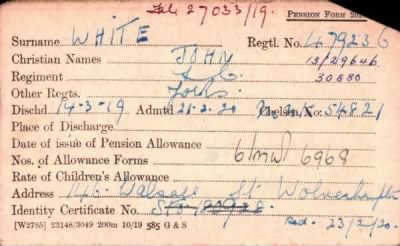 27033/19. PENSION FORM
Surname WHITE Regtl. No. 479236
Christian Names JOHN 13/29646
Regiment L.C. 30880
Other Regts. Yorks.
Dischd 14-3-19 Admtd 21-2-20 Chelsea No: 54821
Place of Discharge
Date of issue of Pension Allowance
Nos. of Allowance Forms 6968
Rate of Children's Allowance
Address Walsall St Wolverhampton
Identity Certificate No.
23/2/20.
[W2785] 23148/3049 200m 10/19 585 G & S